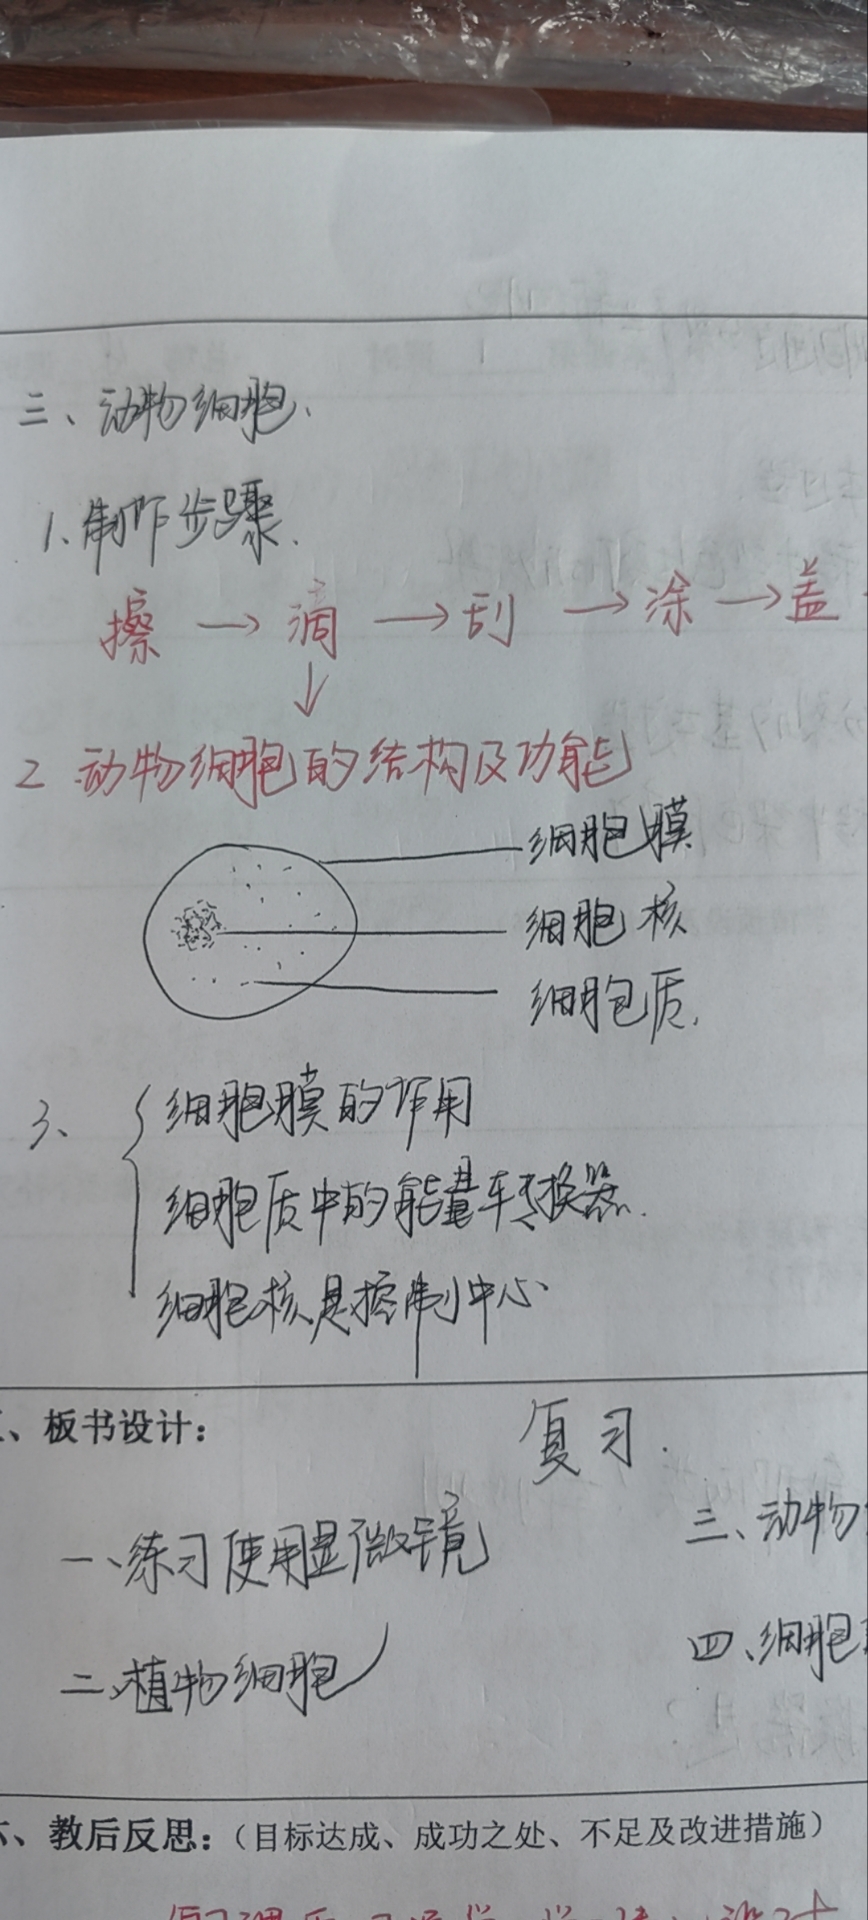 三、动物细胞、
1、制作步骤.
擦 → 滴 → 刮 → 涂 → 盖
↓
2 动物细胞的结构及功能
细胞膜
细胞核
细胞质.
3、{细胞膜的作用
细胞质中的能量转换器.
细胞核是控制中心.
、板书设计：
复习.
一、练习使用显微镜 三、动物
二、植物细胞 四、细胞
六、教后反思：（目标达成、成功之处、不足及改进措施）